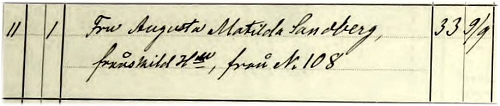 11 1 Fru Augusta Matilda Sandberg, 33 9/9
frånskild Hu, från No 108